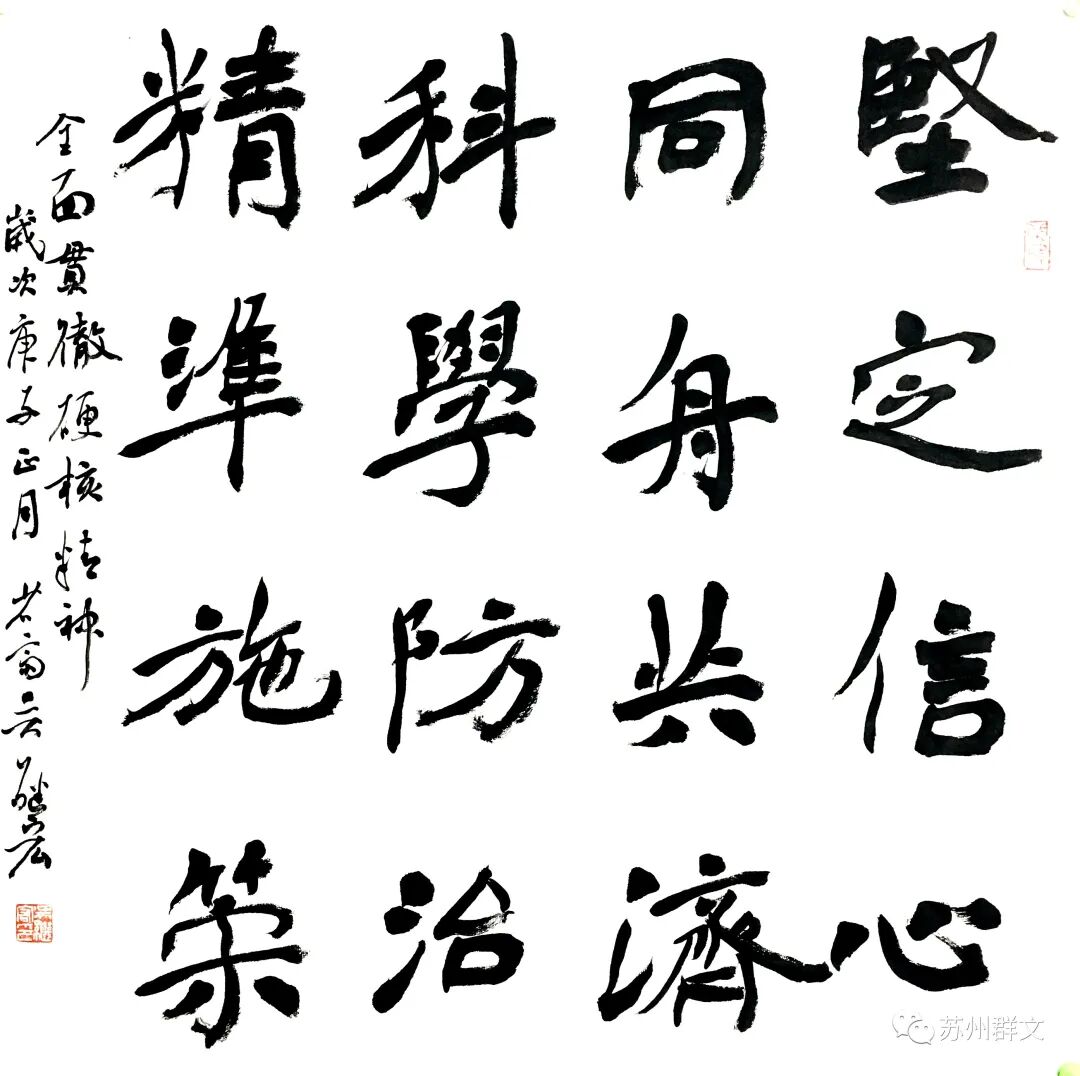 堅定信心
同舟共濟
科學防治
精準施策
全面貫徹硬核精神
歲次庚子正月
苏州群文